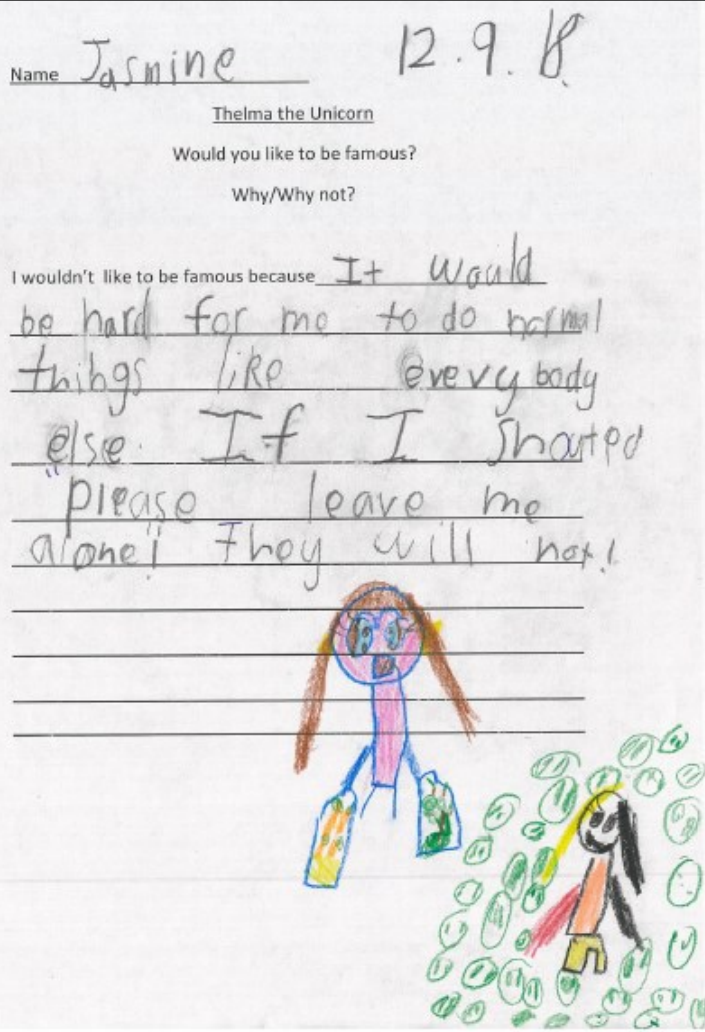 Name Jasmine 12.9.18
Thelma the Unicorn
Would you like to be famous?
Why/Why not?
I wouldn't like to be famous because It would
be hard for me to do normal
things like everybody
else. If I shouted
"please leave me
alone!" They will not!